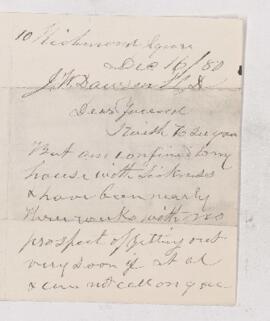 10 Richmond Square
Dec 16/80
J. W. Dawson LL.D
Dear friend
I wish to see you
But am confined to my
house with sickness
& have been nearly
three weeks with no
prospect of getting out
very soon if at al
& can not call on you